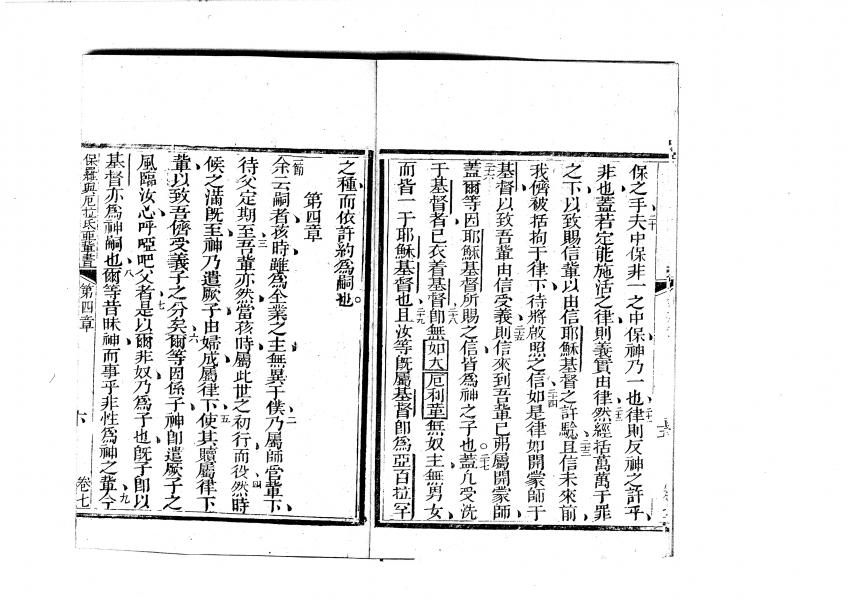 保之手夫中保非一之中保神乃一也律則反神之許乎
非也蓋若定能施活之律則義實由律然經括萬萬于罪
之下以致賜信輩以由信耶穌基督之許騐且信未來前
我儕被括拘于律下待將啟照之信如是律如開蒙師于
基督以致吾輩由信受義則信來到吾輩已弗屬開蒙師
蓋爾等因耶穌基督所賜之信皆為神之子也蓋凡受洗
于基督者已衣着基督卽無如大厄利輩無奴主無男女
而皆一于耶穌基督也且汝等旣屬基督卽為亞百拉罕
之種而依許約為嗣也
第四章
一節
余云嗣者孩時雖為全業之主無異于僕乃屬師官輩下
待父定期至吾輩亦然當孩時屬此世之初行而役然時
候之滿旣至神乃遣厥子由婦成屬律下使其贖屬律下
輩以致吾儕受義子之分矣爾等因係子神卽遣厥子之
風臨汝心呼啞吧父者是以爾非奴乃為子也旣子卽以
基督亦為神嗣也爾等昔昧神而事乎非性為神之輩今
保羅與厄拉氏亞輩書
第四章
卷七